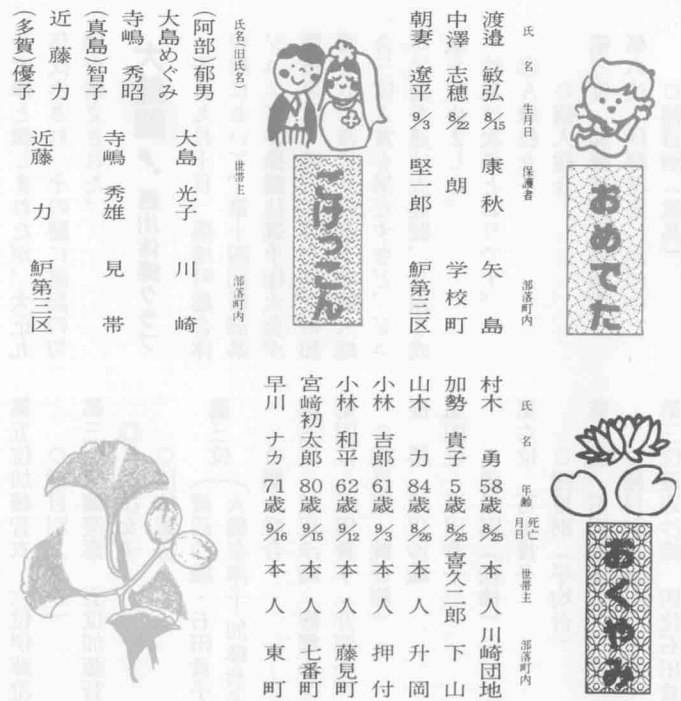 おめでた
氏名 生月日 保護者 部落町内
渡邉 敏弘 8/15 康秋 矢島
中澤 志穂 8/22 朗 学校町
朝妻 遼平 9/3 堅一郎 鮖第三区
ごけっこん
氏名(旧氏名) 世帯主 部落町内
(阿部)郁男
大島めぐみ 大島 光子 川崎
寺嶋 秀昭
(真島)智子 寺嶋 秀雄 見帯
近藤 力
(多賀)優子 近藤 力 鮖第三区
おくやみ
氏名 年齢 死亡月日 世帯主 部落町内
村木 勇 58歳 8/25 本人 川崎団地
加勢 貴子 5歳 8/25 喜久二郎 下山
山木 力 84歳 8/26 本人 升岡
小林 吉郎 61歳 9/3 本人 押付
小林 和平 62歳 9/12 本人 藤見町
宮﨑初太郎 80歳 9/15 本人 七番町
早川 ナカ 71歳 9/16 本人 東町